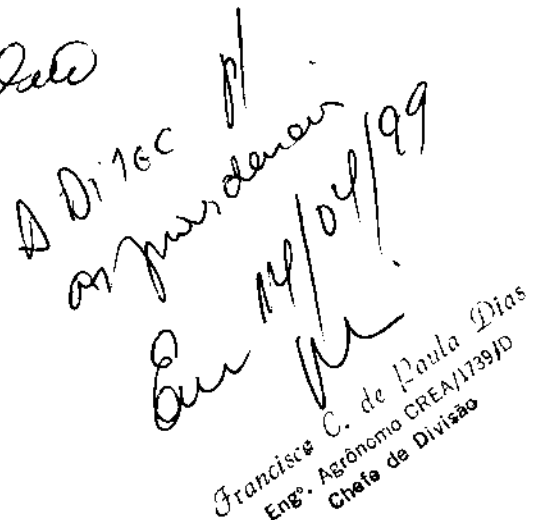 A DiTEC p/
as providencias
Em 14/04/99
Francisco C. de Paula Dias
Engº. Agrônomo CREA/1739/D
Chefe de Divisão